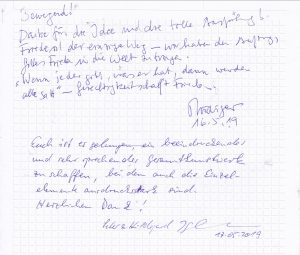 Bewegend!
Danke für die Idee und die tolle Ausführung!
Friede ist der einzige Weg – wir haben den Auftrag
Frieden in die Welt zu tragen.
"Wenn jeder gibt, was er hat, dann werden
alle satt" – Gerechtigkeit schafft Frieden.
16.5.19
Euch ist es gelungen, ein beeindruckendes
und sehr sprechendes Gesamtkunstwerk
zu schaffen, bei dem auch die Einzel-
elemente ausdrucksstark sind.
Herzlichen Dank!
17.05.2019